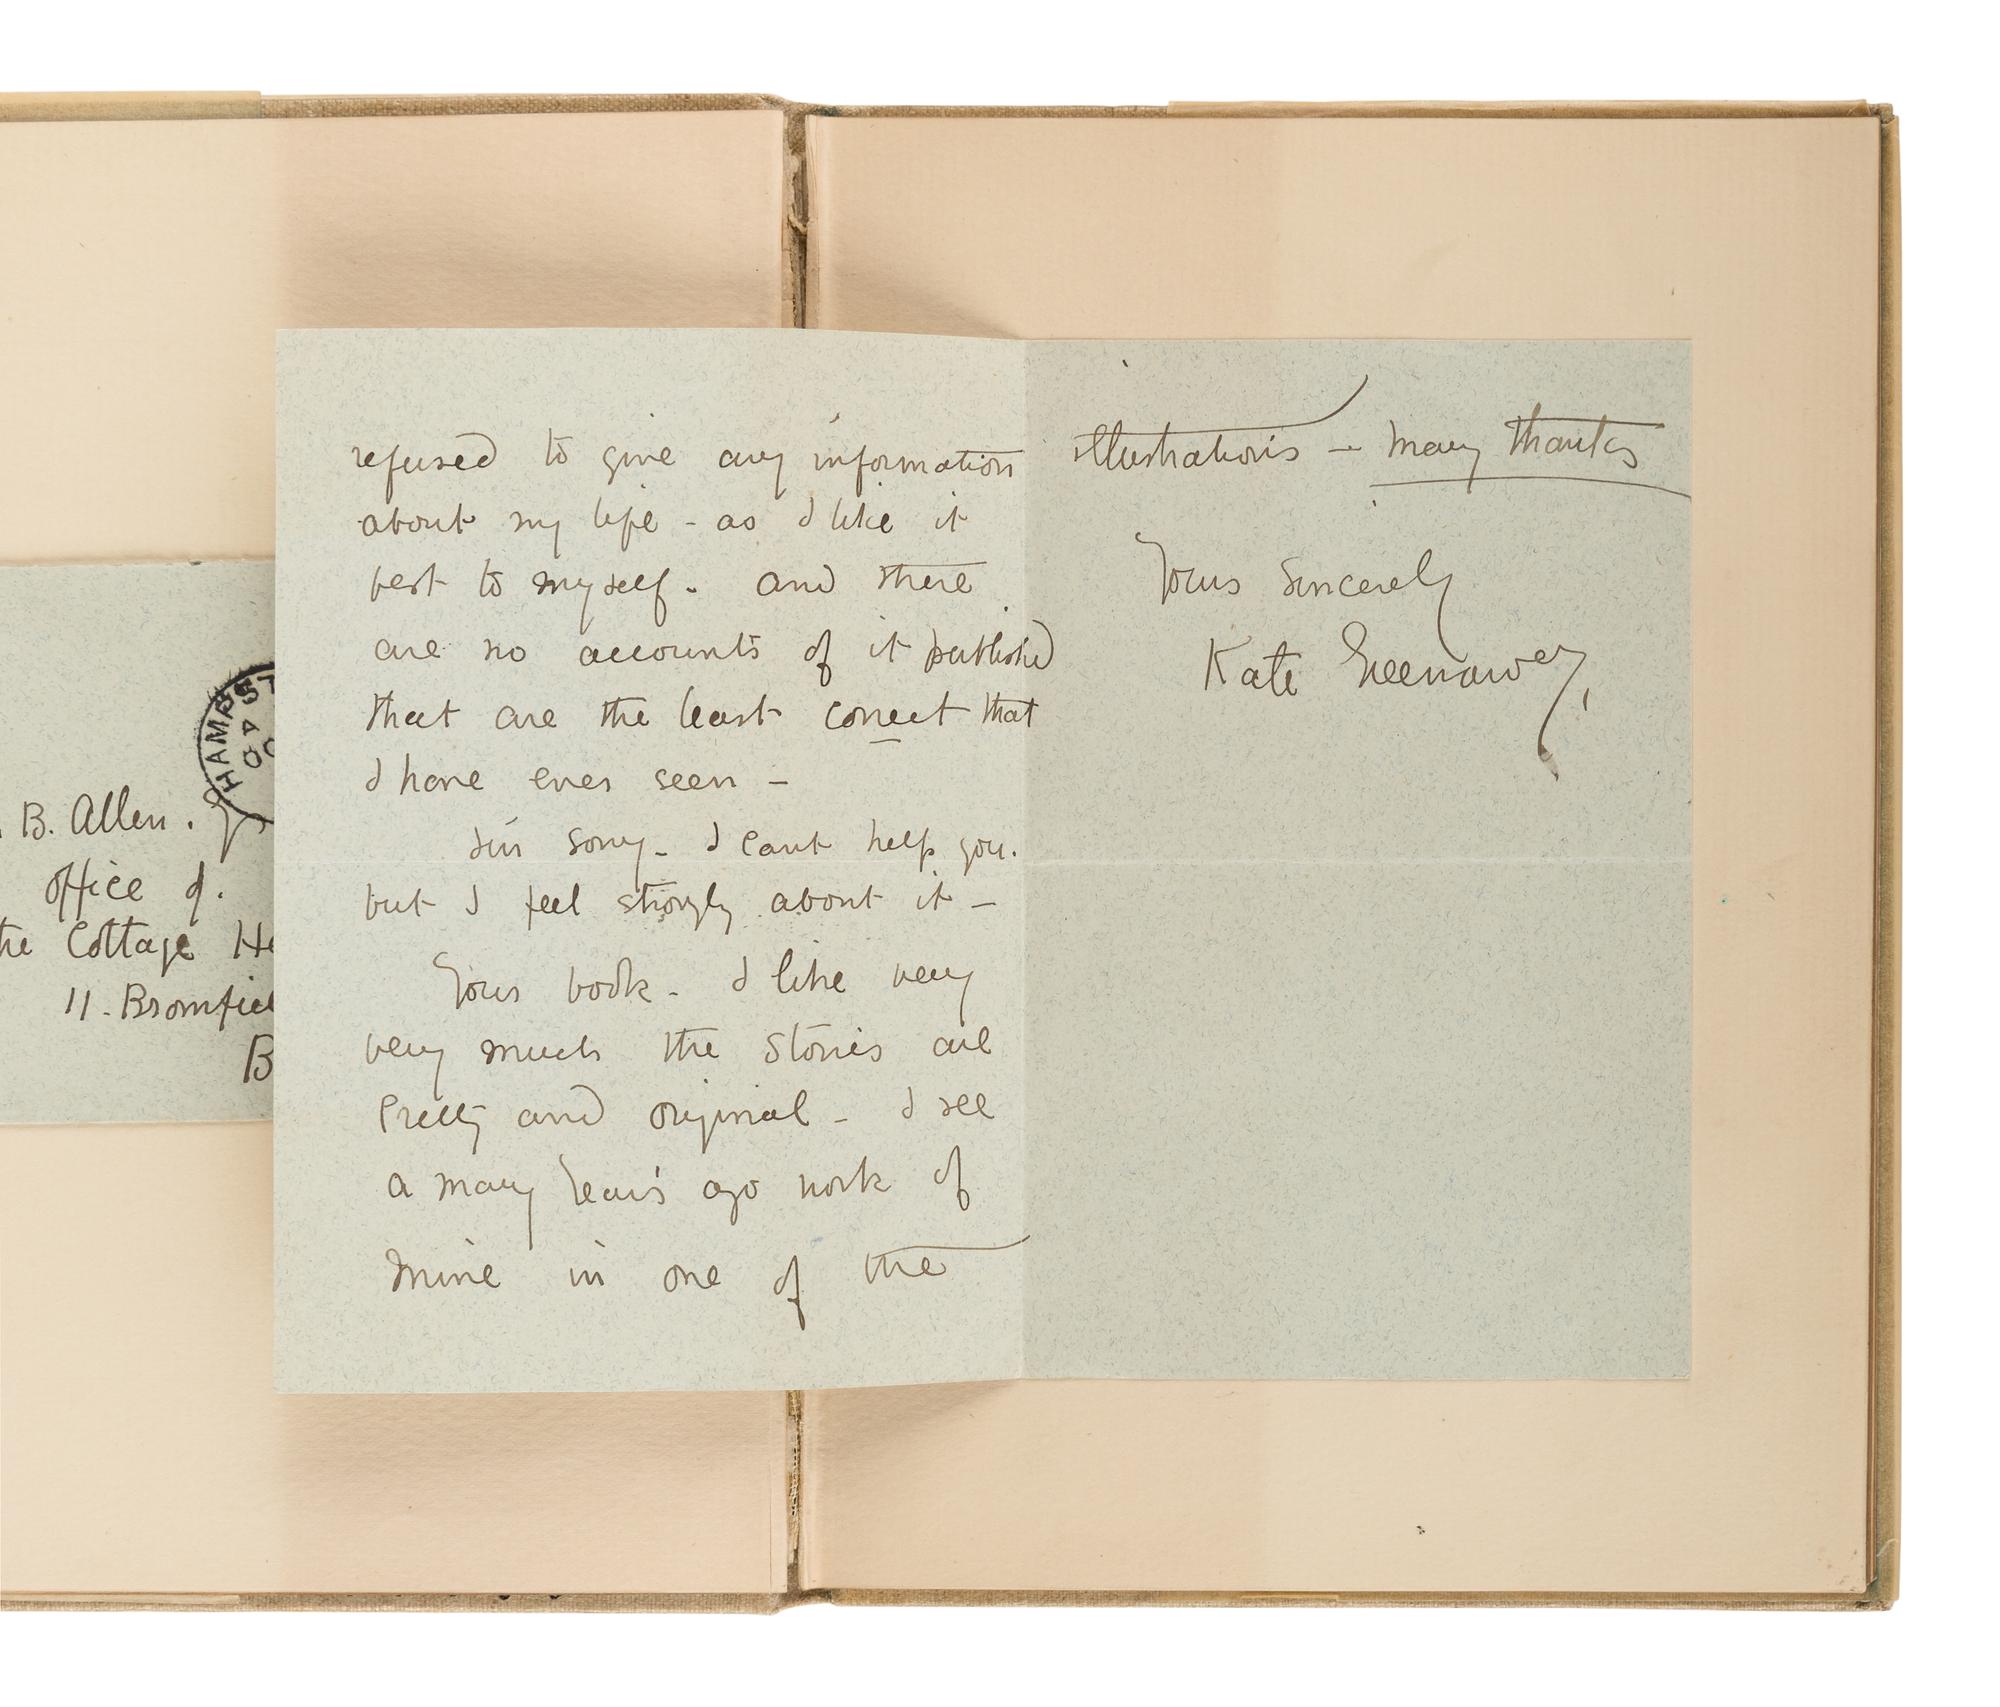 refused to give any information
about my life - as I like it
best to myself - and there
are no accounts of it published
that are the least correct that
I have ever seen -
I'm sorry - I cant help you.
but I feel strongly about it -
Your book - I like very
very much the stories are
Pretty and original - I see
a many Years ago work of
Mine in one of the
illustrations - many thanks
Yours sincerely
Kate Greenaway
HAMPST
B. Allen.
office of.
the Cottage He
11. Bromfiel
B